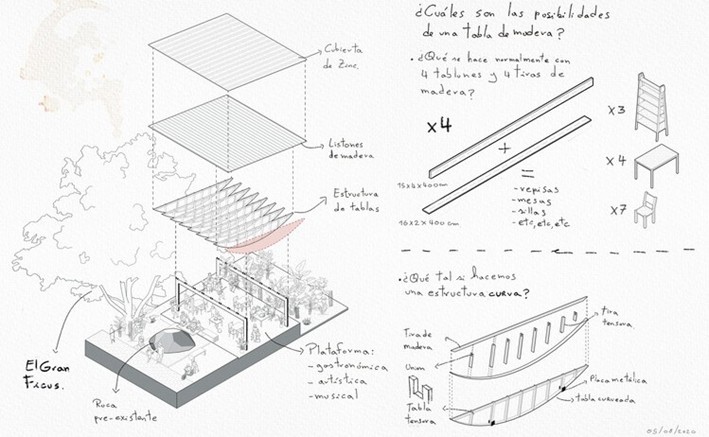 Cubierta
de Zinc.
Listones
de madera
Estructura
de tablas
El Gran
Ficus.
Roca
pre-existente
Plataforma:
- gastronómica
- artística
- musical
¿Cuáles son las posibilidades
de una tabla de madera?
• ¿Qué se hace normalmente con
4 tablones y 4 tiras de
madera?
x4
+
=
15x4x400cm
16x2x400cm
- repisas
- mesas
- sillas
- etc, etc, etc
x3
x4
x7
• ¿Qué tal si hacemos
una estructura curva?
Tira de
madera
tira
tensora.
Unión
Tabla
tensora
Placa metálica
tabla curveada